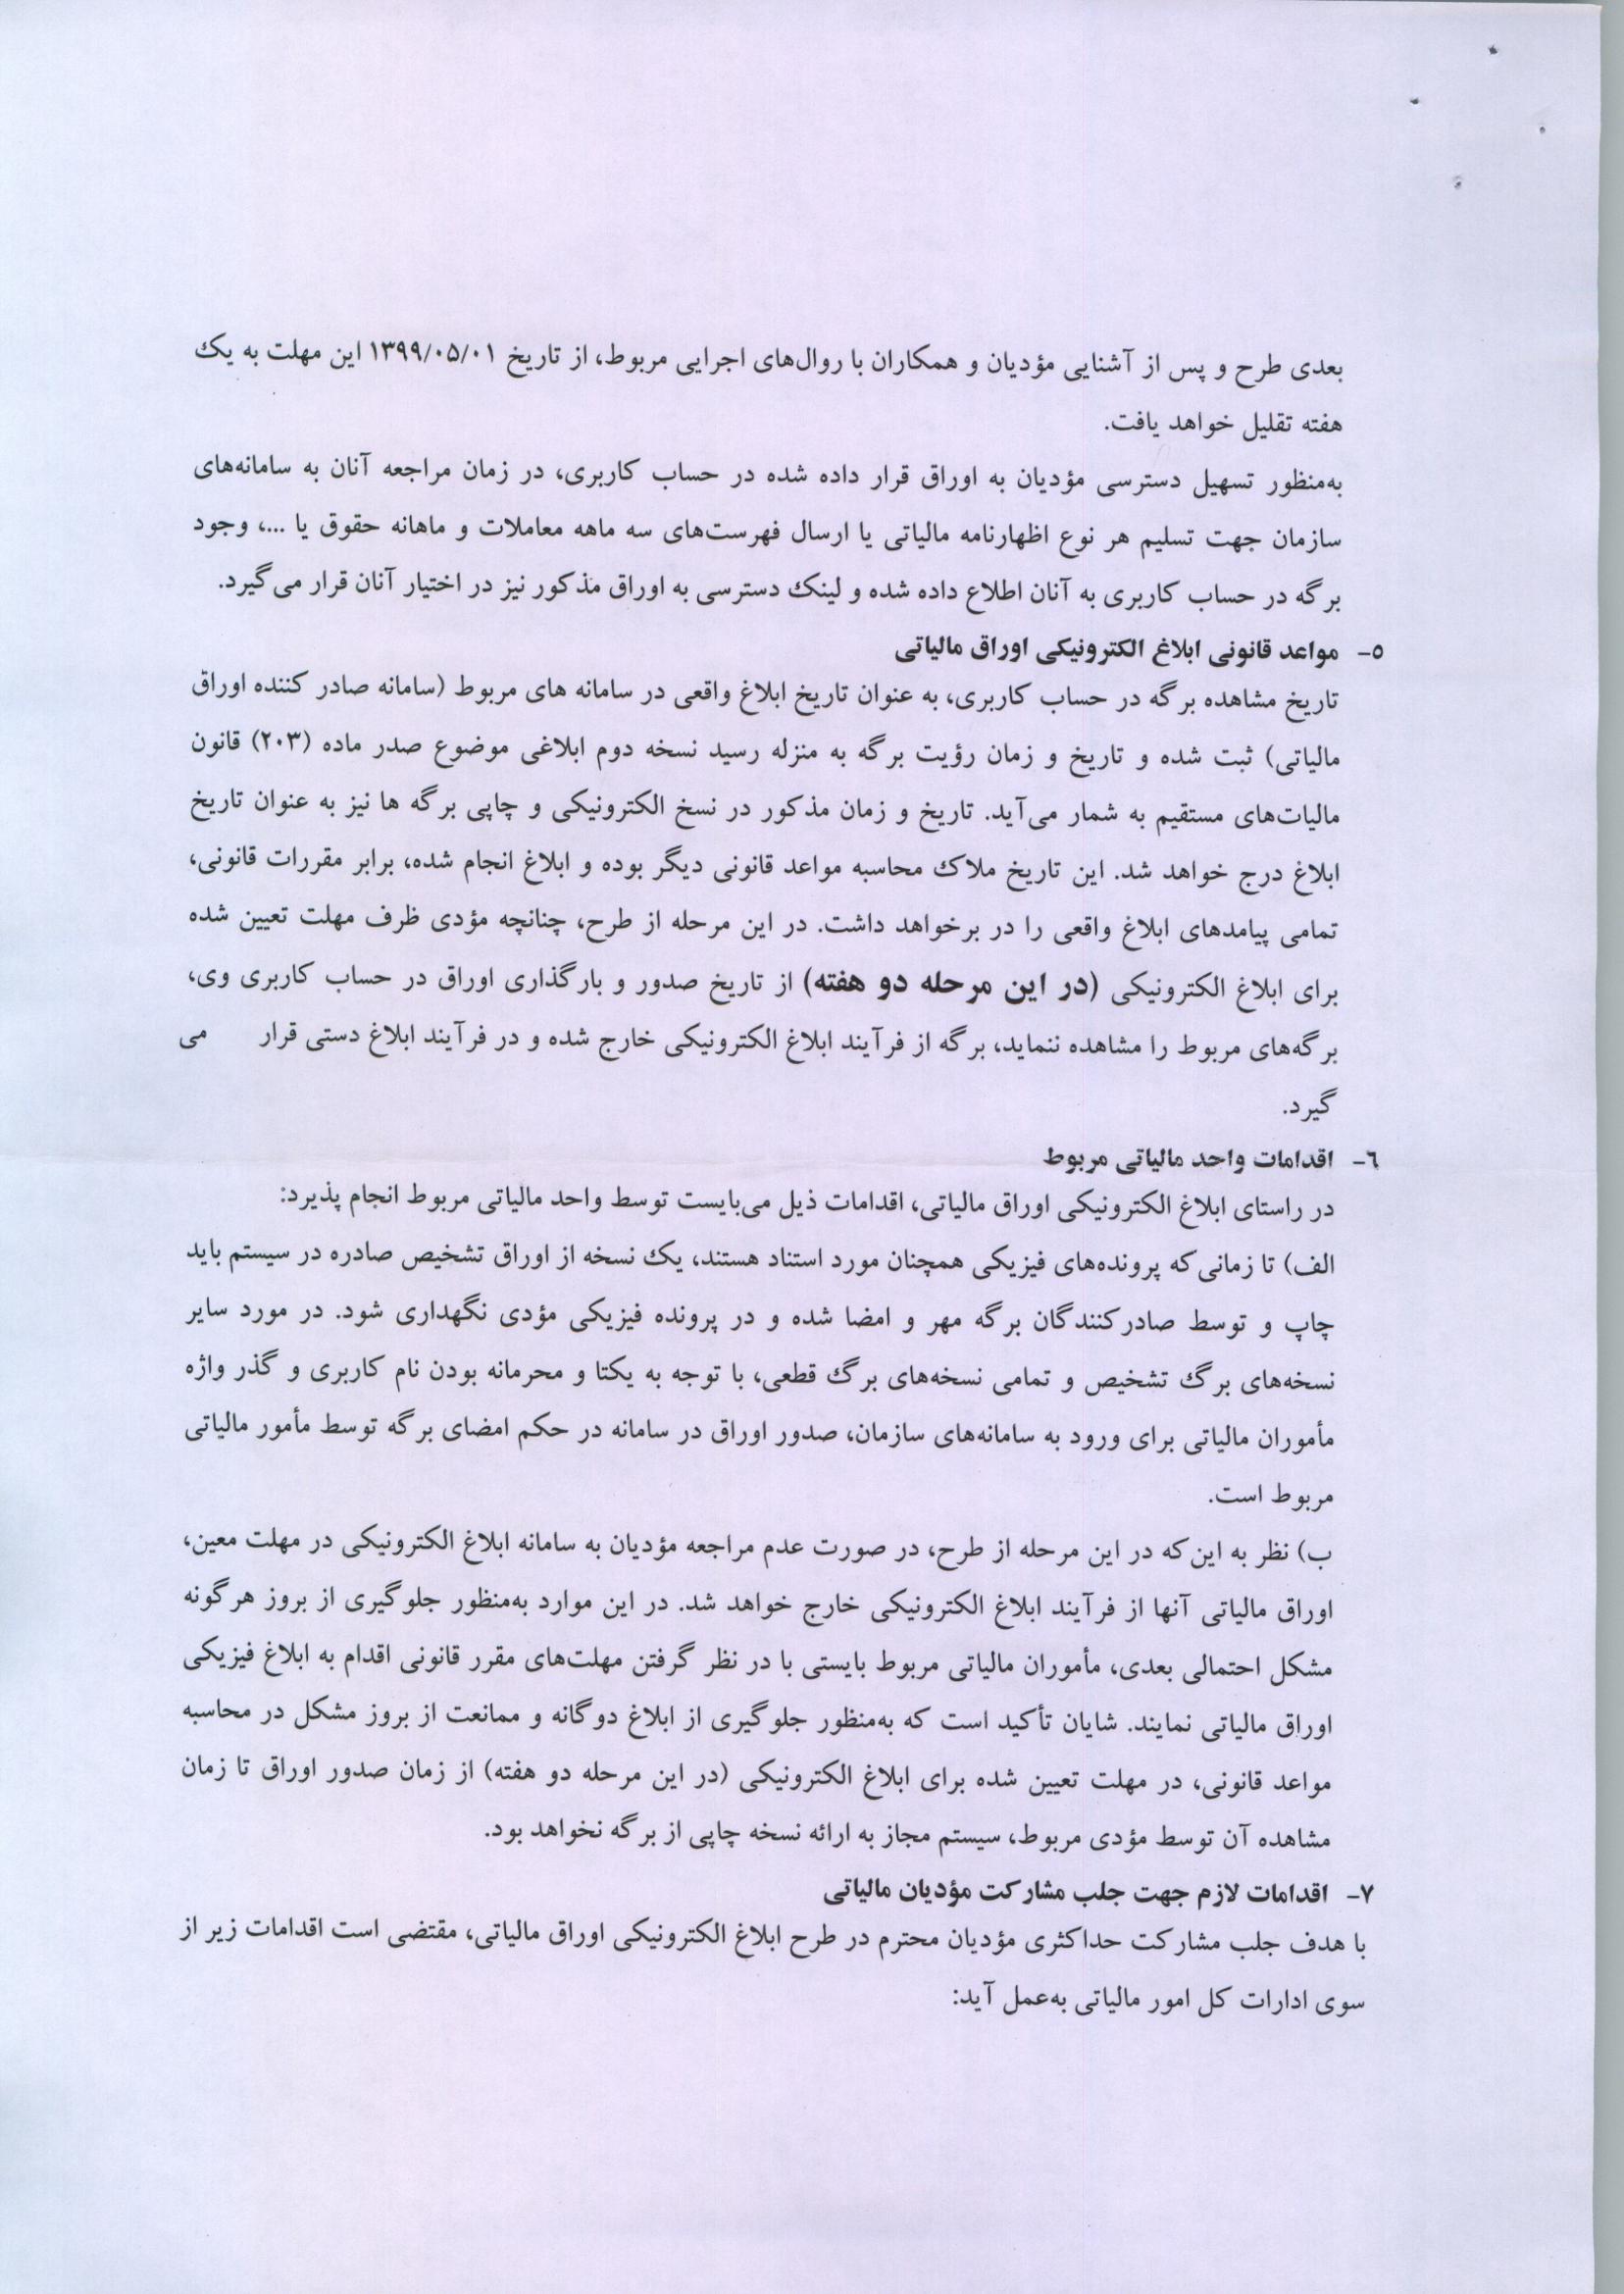 بعدی طرح و پس از آشنایی مؤدیان و همکاران با روال‌های اجرایی مربوط، از تاریخ ۱۳۹۹/۰۵/۰۱ این مهلت به یک
هفته تقلیل خواهد یافت.
به‌منظور تسهیل دسترسی مؤدیان به اوراق قرار داده شده در حساب کاربری، در زمان مراجعه آنان به سامانه‌های
سازمان جهت تسلیم هر نوع اظهارنامه مالیاتی یا ارسال فهرست‌های سه ماهه معاملات و ماهانه حقوق یا ...، وجود
برگه در حساب کاربری به آنان اطلاع داده شده و لینک دسترسی به اوراق مذکور نیز در اختیار آنان قرار می‌گیرد.
۵- مواعد قانونی ابلاغ الکترونیکی اوراق مالیاتی
تاریخ مشاهده برگه در حساب کاربری، به عنوان تاریخ ابلاغ واقعی در سامانه های مربوط (سامانه صادر کننده اوراق
مالیاتی) ثبت شده و تاریخ و زمان رؤیت برگه به منزله رسید نسخه دوم ابلاغی موضوع صدر ماده (۲۰۳) قانون
مالیات‌های مستقیم به شمار می‌آید. تاریخ و زمان مذکور در نسخ الکترونیکی و چاپی برگه ها نیز به عنوان تاریخ
ابلاغ درج خواهد شد. این تاریخ ملاک محاسبه مواعد قانونی دیگر بوده و ابلاغ انجام شده، برابر مقررات قانونی،
تمامی پیامدهای ابلاغ واقعی را در برخواهد داشت. در این مرحله از طرح، چنانچه مؤدی ظرف مهلت تعیین شده
برای ابلاغ الکترونیکی (در این مرحله دو هفته) از تاریخ صدور و بارگذاری اوراق در حساب کاربری وی،
برگه‌های مربوط را مشاهده ننماید، برگه از فرآیند ابلاغ الکترونیکی خارج شده و در فرآیند ابلاغ دستی قرار می
گیرد.
۶- اقدامات واحد مالیاتی مربوط
در راستای ابلاغ الکترونیکی اوراق مالیاتی، اقدامات ذیل می‌بایست توسط واحد مالیاتی مربوط انجام پذیرد:
الف) تا زمانی‌که پرونده‌های فیزیکی همچنان مورد استناد هستند، یک نسخه از اوراق تشخیص صادره در سیستم باید
چاپ و توسط صادرکنندگان برگه مهر و امضا شده و در پرونده فیزیکی مؤدی نگهداری شود. در مورد سایر
نسخه‌های برگ تشخیص و تمامی نسخه‌های برگ قطعی، با توجه به یکتا و محرمانه بودن نام کاربری و گذر واژه
مأموران مالیاتی برای ورود به سامانه‌های سازمان، صدور اوراق در سامانه در حکم امضای برگه توسط مأمور مالیاتی
مربوط است.
ب) نظر به این‌که در این مرحله از طرح، در صورت عدم مراجعه مؤدیان به سامانه ابلاغ الکترونیکی در مهلت معین،
اوراق مالیاتی آنها از فرآیند ابلاغ الکترونیکی خارج خواهد شد. در این موارد به‌منظور جلوگیری از بروز هرگونه
مشکل احتمالی بعدی، مأموران مالیاتی مربوط بایستی با در نظر گرفتن مهلت‌های مقرر قانونی اقدام به ابلاغ فیزیکی
اوراق مالیاتی نمایند. شایان تأکید است که به‌منظور جلوگیری از ابلاغ دوگانه و ممانعت از بروز مشکل در محاسبه
مواعد قانونی، در مهلت تعیین شده برای ابلاغ الکترونیکی (در این مرحله دو هفته) از زمان صدور اوراق تا زمان
مشاهده آن توسط مؤدی مربوط، سیستم مجاز به ارائه نسخه چاپی از برگه نخواهد بود.
۷- اقدامات لازم جهت جلب مشارکت مؤدیان مالیاتی
با هدف جلب مشارکت حداکثری مؤدیان محترم در طرح ابلاغ الکترونیکی اوراق مالیاتی، مقتضی است اقدامات زیر از
سوی ادارات کل امور مالیاتی به‌عمل آید: